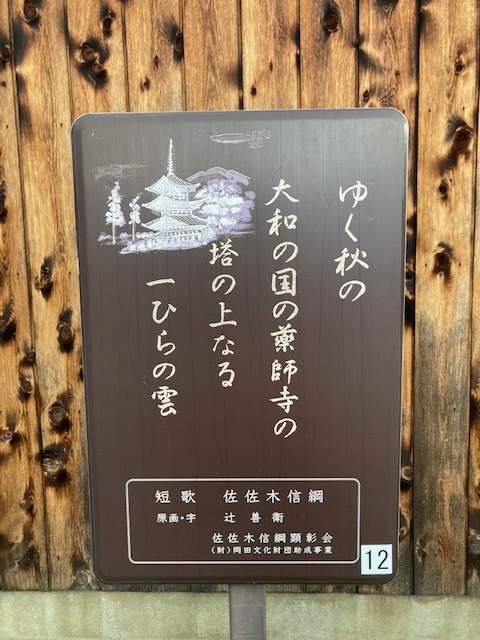 ゆく秋の
大和の国の薬師寺の
塔の上なる
一ひらの雲
短歌 佐佐木信綱
原画・字 辻善衛
佐佐木信綱顕彰会
(財)岡田文化財団助成事業
12